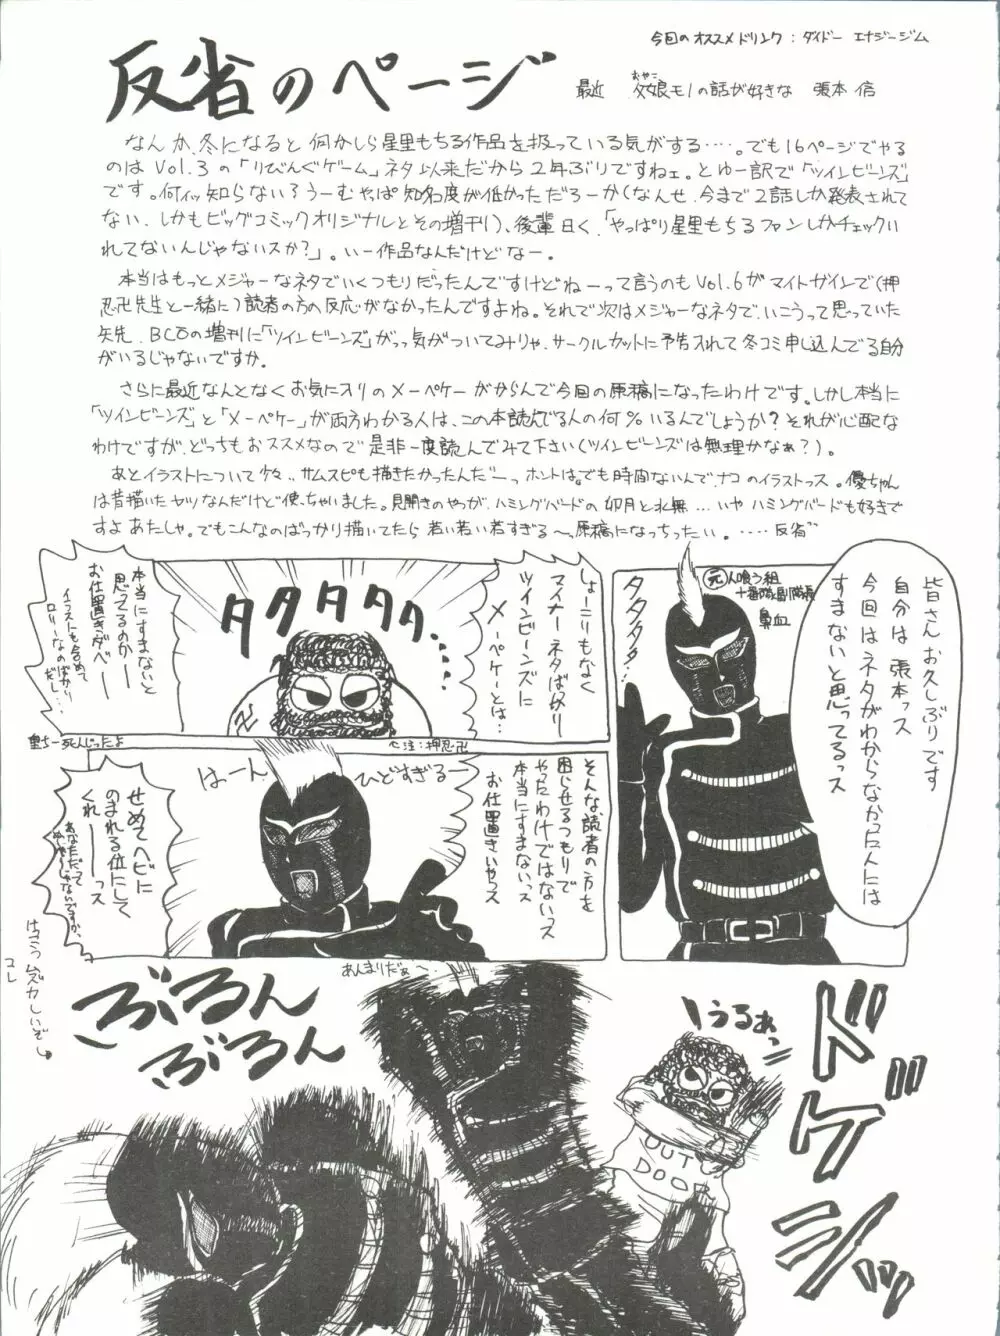 今回のオススメドリンク：ダイドー エナジージム
反省のページ
最近 父娘モノの話が好きな 張本 信
おやこ
なんか、冬になると 何かしら星里もちる作品を扱っている気がする……。でも16ページでやる
のは Vol.3の「りびんぐゲーム」ネタ以来だから2年ぶりですねェ。とゆー訳で「ツインビーンズ」
です。何ィッ知らない？うーむやっぱ知名度が低かっただろーか(なんせ、今まで2話しか発表されて
ない、しかもビッグコミックオリジナルとその増刊!)、後輩曰く、「やっぱり星里もちるファンしかチェック入
れてないんじゃないスか？」。いー作品なんだけどなー。
本当はもっとメジャーなネタでいくつもりだったんですけどねーって言うのもVol.6がマイトガインで(押
忍卍先生と一緒に)読者の方の反応がなかったんですよね。それで次はメジャーなネタで、いこうって思っていた
矢先、BCOの増刊に「ツインビーンズ」がっっ気がついてみりゃ、サークルカットに予告されて冬コミ申し込んでる自分
がいるじゃないですか。
さらに最近なんとなくお気に入りのメーペケーがからんで今回の原稿になったわけです。しかし本当に
「ツインビーンズ」と「メーペケー」が両方わかる人は、この本読んでる人の何%いるんでしょうか？それが心配な
わけですが、どっちもおススメなので是非一度読んでみて下さい(ツインビーンズは無理かなぁ？)。
あとイラストについて少々、サムスピも描きたかったんだーっホントは。でも時間ないんで、ナコのイラストっス。優ちゃん
は昔描いたヤツなんだけど使っちゃいました。見開きのやつが、ハミングバードの卯月と水無…いやハミングバードも好きで
すよあたしゃ。でもこんなのばっかり描いてたら若い若い若すぎる〜っ原稿になっちったい。……反省
皆さんお久しぶりです
自分は張本っス
今回はネタがわからなかった人には
すまないと思ってるっス
元 人喰う組
十番隊副隊長
鼻血
タタタタ
しょーこりもなく
マイナーネタばかり
ツインビーンズに
メーペケーとは…
タタタタタタ、
卍
本当にすまないと
思ってるのかーー
お仕置きダベー
イラストも含めて
ロリーなのばかり
だし…
←注：押忍卍
そんな、読者の方を
困らせるつもりで
やったわけではないっス
本当にすまないっス
お仕置きいやっス
ひどすぎるー
はーん
せめてヘビに
のまれる位にして
くれーーっス
はっきりムズカしいぞ
コレ
ぶるん
ぶるん
あんまりだぁ〜、
うるぁっ
OUT
DOOR
ドドゲシッ